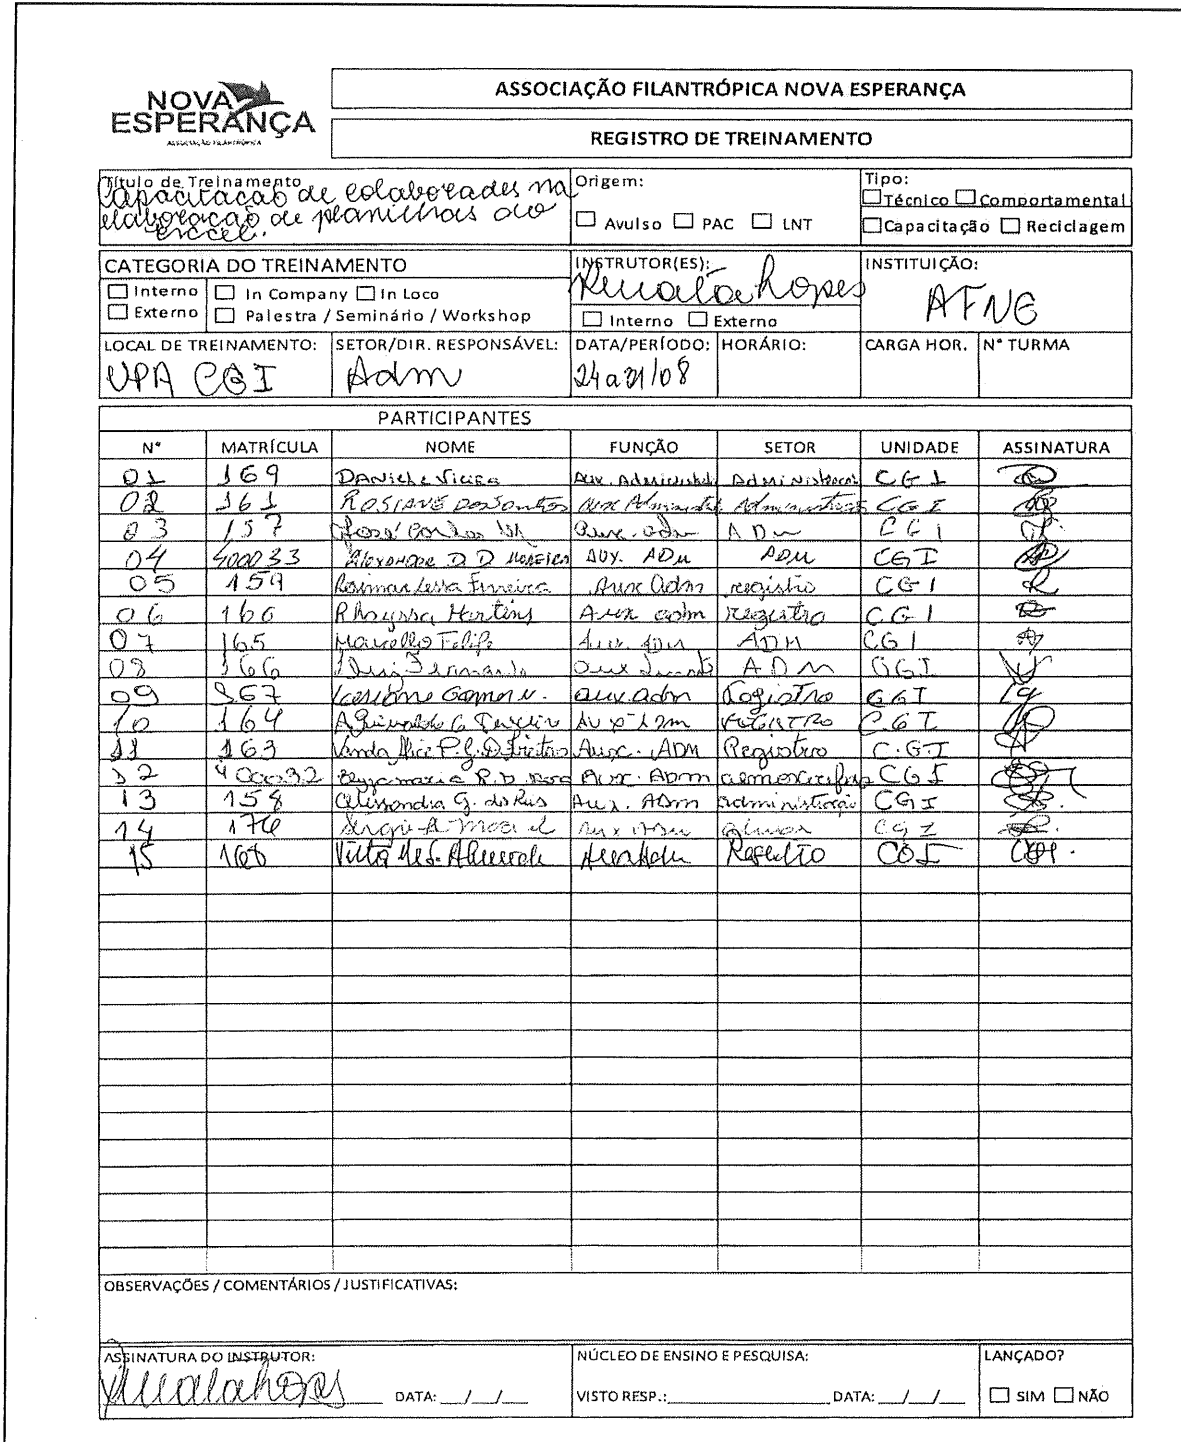 NOVA
ESPERANÇA
ASSOCIAÇÃO FILANTRÓPICA
ASSOCIAÇÃO FILANTRÓPICA NOVA ESPERANÇA
REGISTRO DE TREINAMENTO
Título de Treinamento
Capacitacao de colaborades na
elaboracao de planilhas do
excel.
Origem:
Avulso PAC LNT
Tipo:
Técnico Comportamental
Capacitação Reciclagem
CATEGORIA DO TREINAMENTO
Interno In Company In Loco
Externo Palestra / Seminário / Workshop
INSTRUTOR(ES):
Renata Lopes
Interno Externo
INSTITUIÇÃO:
AFNE
LOCAL DE TREINAMENTO:
UPA CGI
SETOR/DIR. RESPONSÁVEL:
Adm
DATA/PERÍODO:
24 a 31/08
HORÁRIO:
CARGA HOR.
N° TURMA
PARTICIPANTES
N° MATRÍCULA NOME FUNÇÃO SETOR UNIDADE ASSINATURA
01 169 Daniele Vieira Aux. CGI
02 161 ROSIANE dos Santos Aux CGI
03 157 José Carlos Aux. adm ADm CGI
04 400033 Alexandre D. D. Moreira AUX. ADM ADM CGI
05 159 Rosimar Lessa Ferreira Aux Adm registro CGI
06 160 Rhayssa Martins Aux adm registro CGI
07 165 Marcello Felipe Aux. Adm ADM CGI
08 166 Luiz Fernando aux ADM CGI
09 Gomes aux adm Registro CGI
10 164 Teixeira Aux Adm REGISTRO CGI
11 163 Vanda Alice P. G. Aux. ADM Registro C.GI
12 400032 R. D. Aux. Adm CGI
13 158 Alessandra G. dos Reis Aux. ADm administração CGI
14 176 Sergio Aux Adm CGI
15 168 Aux Adm Registro CGI
OBSERVAÇÕES / COMENTÁRIOS / JUSTIFICATIVAS:
ASSINATURA DO INSTRUTOR:
Renata Lopes
DATA: __/__/__
NÚCLEO DE ENSINO E PESQUISA:
VISTO RESP.:____________ DATA: __/__/__
LANÇADO?
SIM NÃO